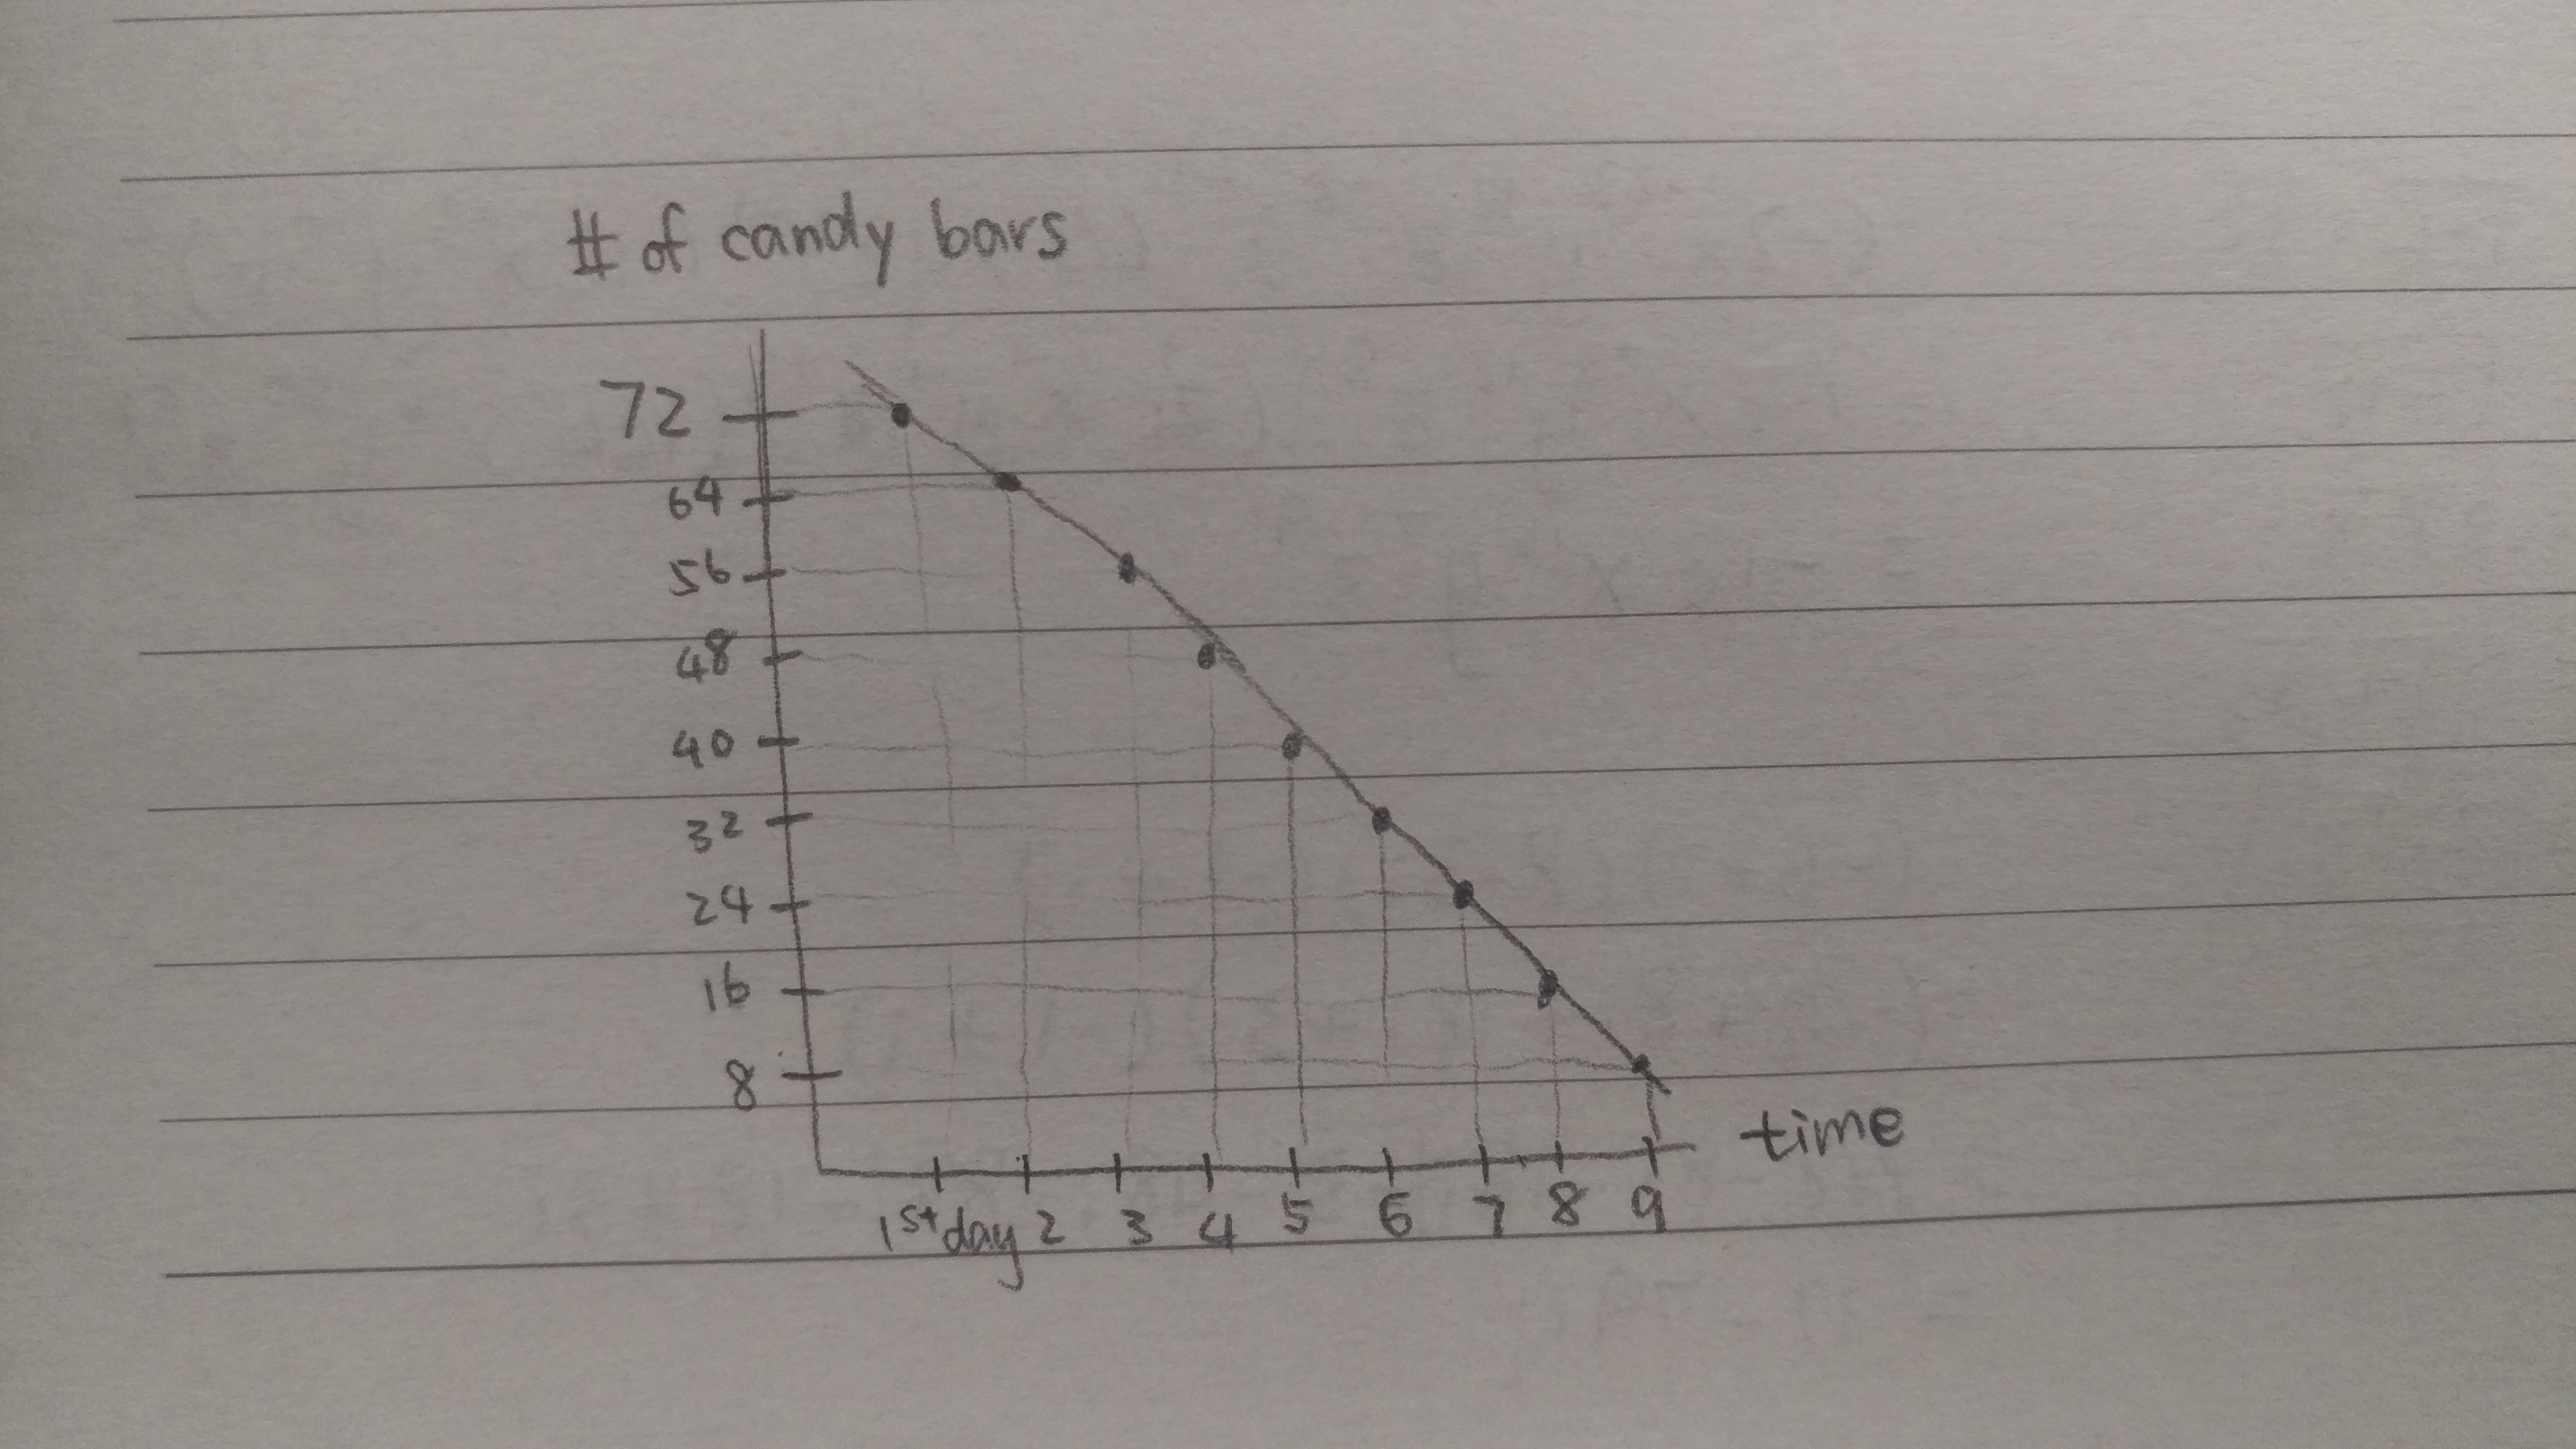 # of candy bars
72
64
56
48
40
32
24
16
8
time
1st day 2 3 4 5 6 7 8 9